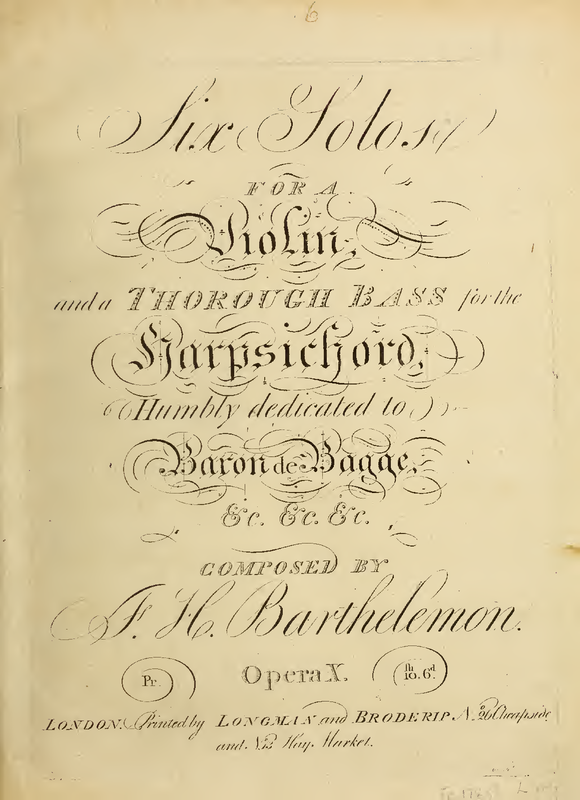 6
Six Solos
FOR A
Violin,
and a THOROUGH BASS for the
Harpsichord,
Humbly dedicated to
Baron de Bagge,
&c. &c. &c.
COMPOSED BY
F. H. Barthelemon.
Pr. Opera X. 10.sh 6.d
LONDON Printed by LONGMAN and BRODERIP No. 26 Cheapside
and No. 13 Hay Market.